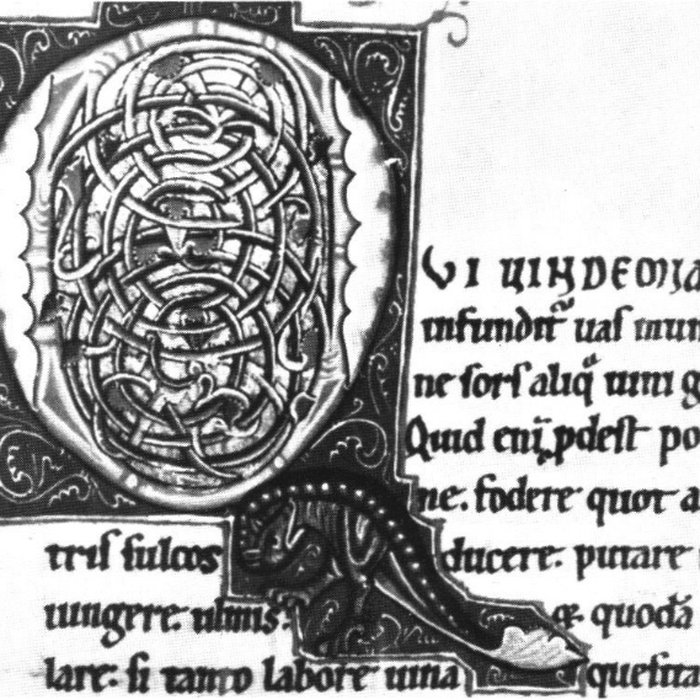 QVI UINDEMIA
infundit uaſ mun
ne ſorſ aliq uini g
Quid eni pdeſt po
ne. fodere quot a
triſ ſulcos ducere. putare
iungere. ulmis. quodā
lare: ſi tanto labore uina queſita